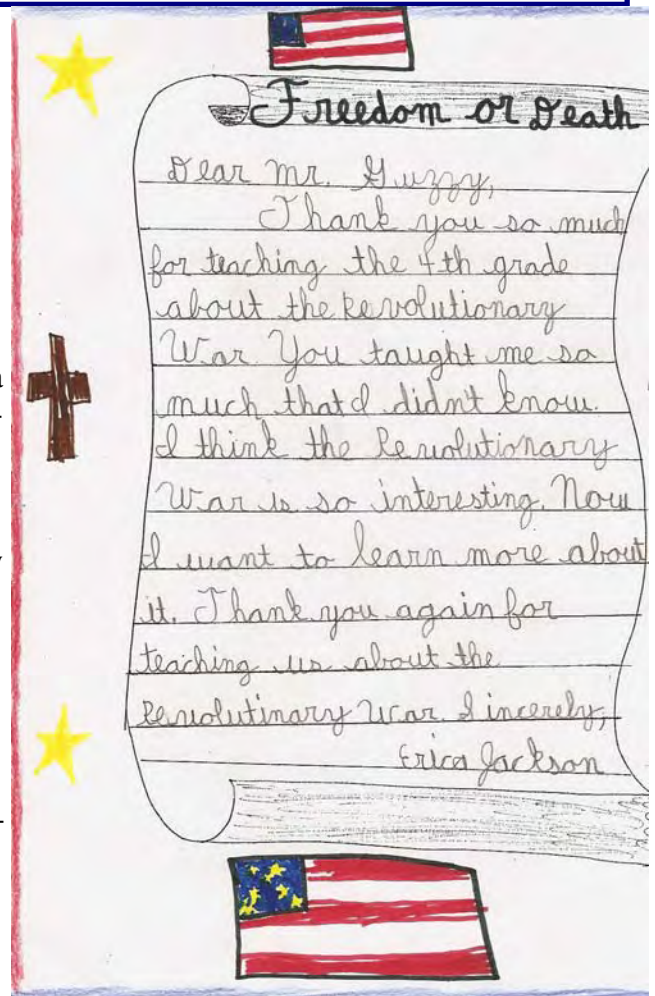 Freedom or Death
Dear Mr. Guzzy,
Thank you so much
for teaching the 4th grade
about the Revolutionary
War. You taught me so
much that I didn't know.
I think the Revolutionary
War is so interesting. Now
I want to learn more about
it. Thank you again for
teaching us about the
Revolutinary War. Sincerely,
Erica Jackson